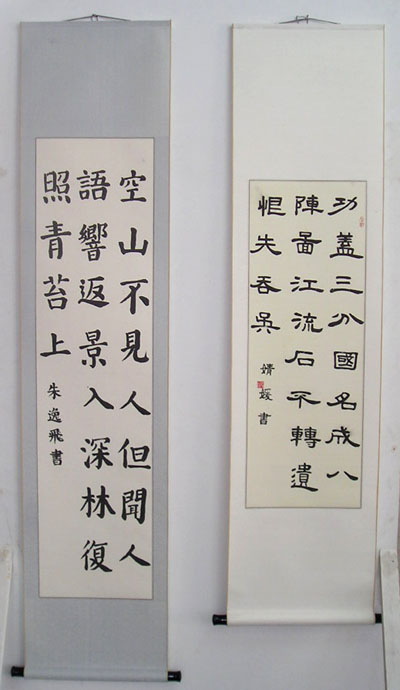 功蓋三分國名成八
陳啚江流石不轉遺
恨失吞吳
婧媛書
空山不見人但聞人
語響返景入深林復
照青苔上
朱逸飛書